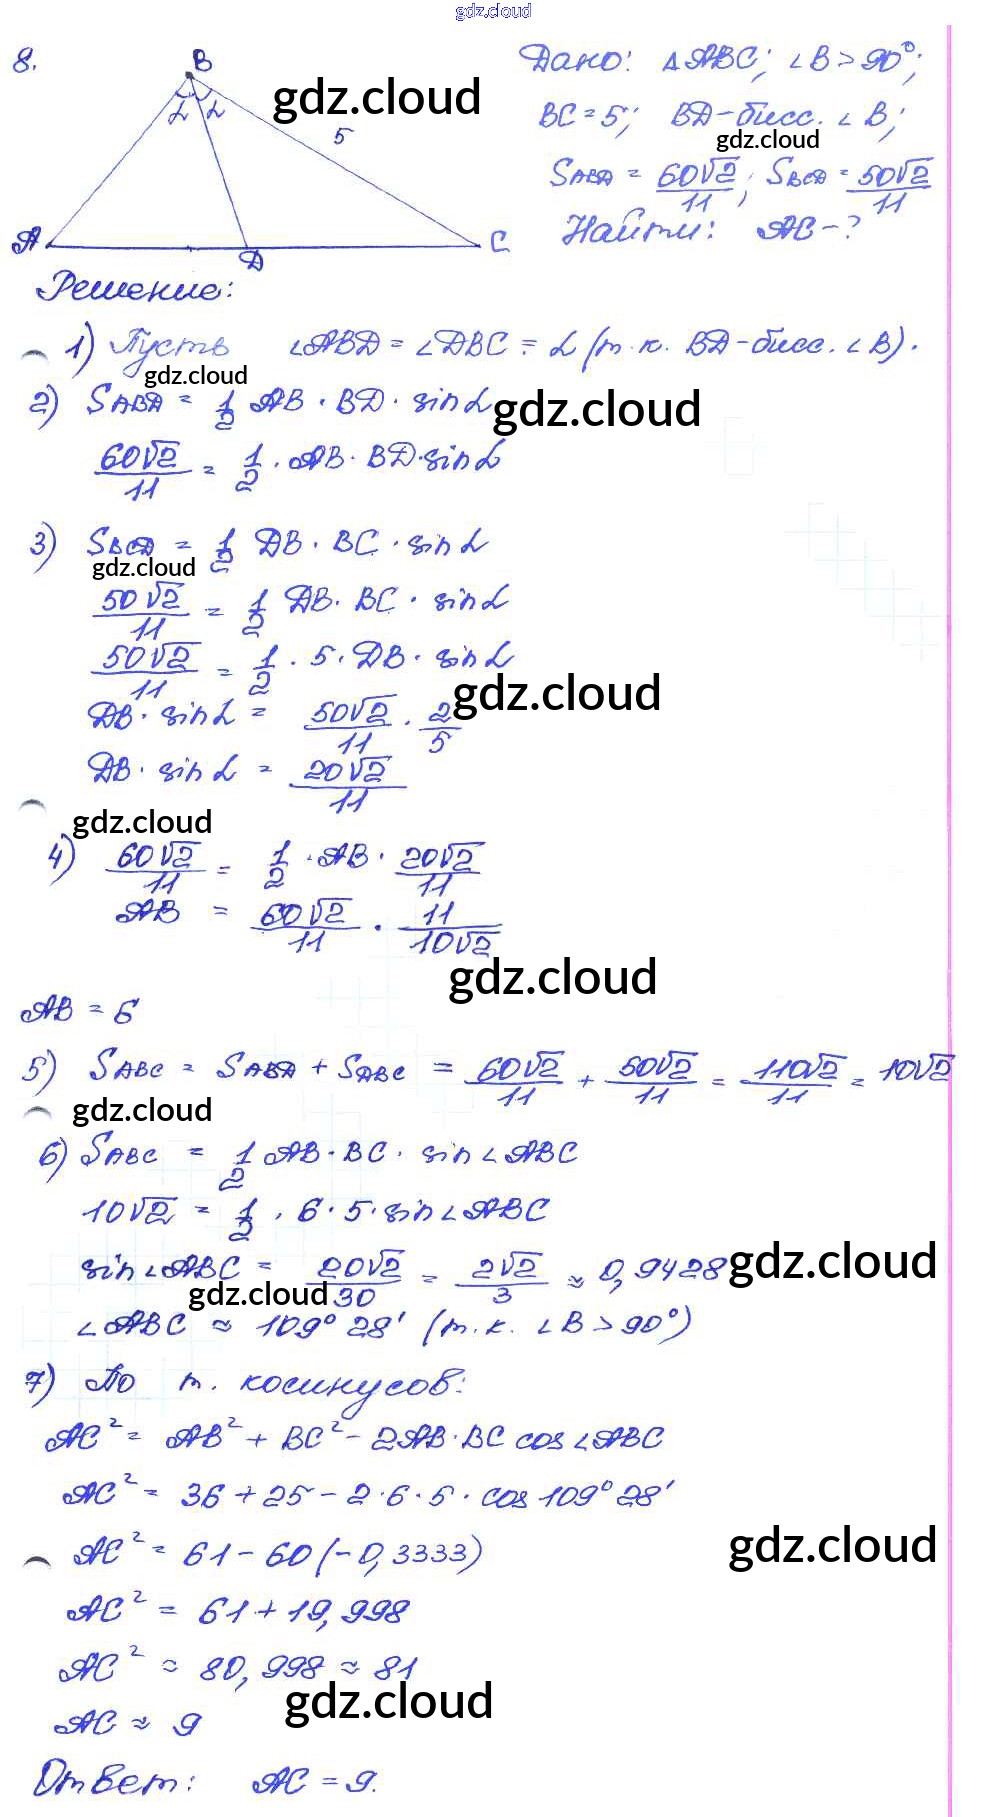 gdz.cloud
8.
B
Дано: △ABC; ∠B > 90°;
gdz.cloud
α α
5
BC = 5; BD - бисс. ∠B;
gdz.cloud
S_ABD = 60√2/11, S_BCD = 50√2/11
A D C
Найти: AC - ?
Решение:
1) Пусть ∠ABD = ∠DBC = α (т.к. BD - бисс. ∠B).
gdz.cloud
2) S_ABD = 1/2 AB · BD · sin α
gdz.cloud
60√2/11 = 1/2 · AB · BD · sin α
3) S_BCD = 1/2 DB · BC · sin α
gdz.cloud
50√2/11 = 1/2 DB · BC · sin α
50√2/11 = 1/2 · 5 · DB · sin α
gdz.cloud
DB · sin α = 50√2/11 · 2/5
DB · sin α = 20√2/11
gdz.cloud
4) 60√2/11 = 1/2 · AB · 20√2/11
AB = 60√2/11 · 11/10√2
gdz.cloud
AB = 6
5) S_ABC = S_ABD + S_DBC = 60√2/11 + 50√2/11 = 110√2/11 = 10√2
gdz.cloud
6) S_ABC = 1/2 AB · BC · sin ∠ABC
10√2 = 1/2 · 6 · 5 · sin ∠ABC
sin ∠ABC = 20√2/30 = 2√2/3 ≈ 0,9428
gdz.cloud
gdz.cloud
∠ABC ≈ 109° 28' (т.к. ∠B > 90°)
7) По т. косинусов:
AC² = AB² + BC² - 2AB · BC cos ∠ABC
AC² = 36 + 25 - 2 · 6 · 5 · cos 109° 28'
AC² = 61 - 60 (-0,3333)
gdz.cloud
AC² = 61 + 19,998
AC² ≈ 80,998 ≈ 81
gdz.cloud
AC ≈ 9
Ответ: AC = 9.